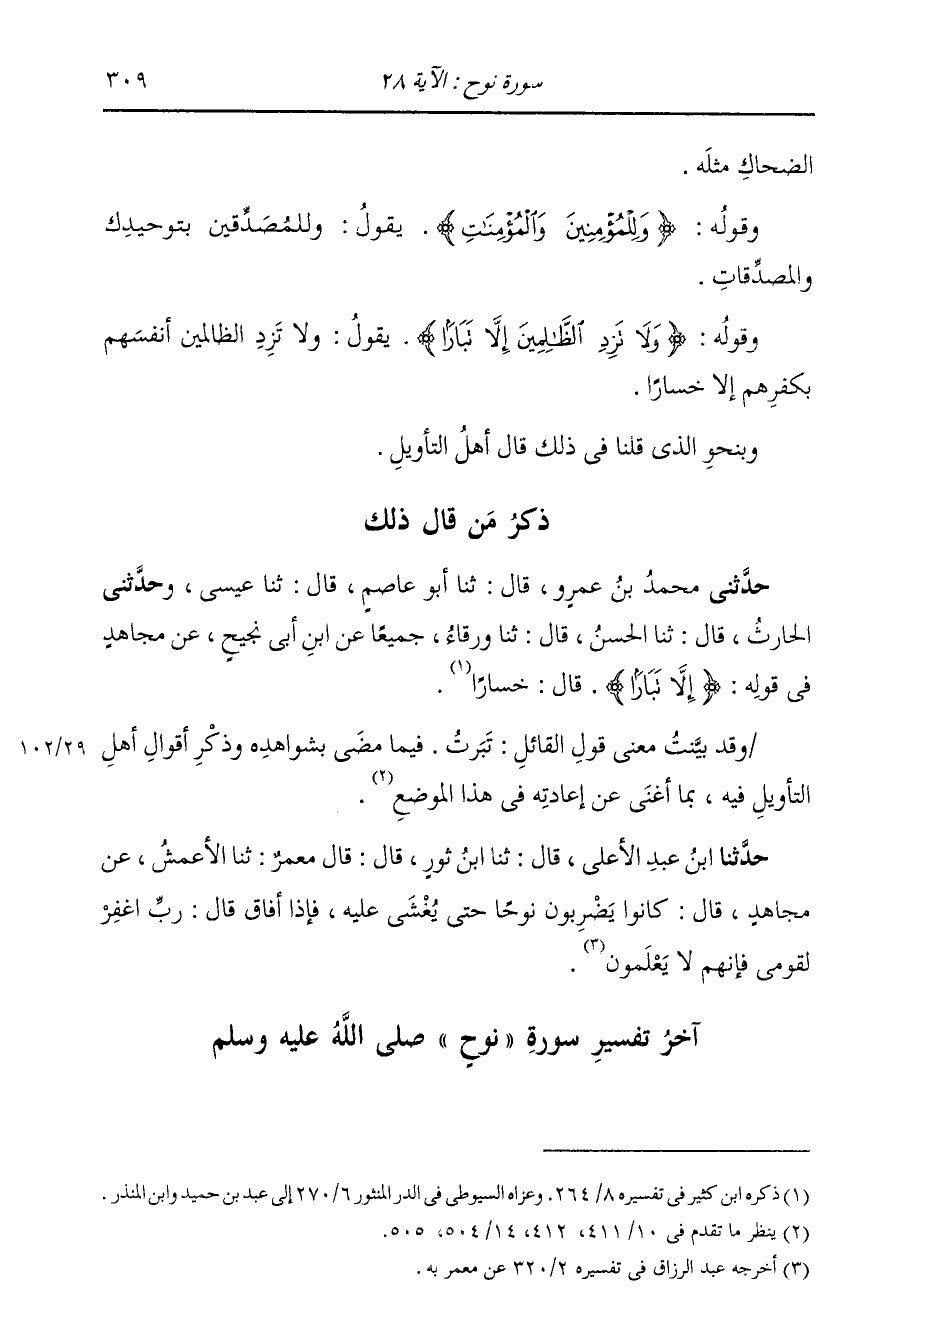 سورة نوح : الآية ٢٨ ٣٠٩
الضحاكِ مثلَه .
وقولُه : ﴿ وَلِلْمُؤْمِنِينَ وَٱلْمُؤْمِنَٰتِ ﴾ . يقولُ : وللمُصَدِّقين بتوحيدِك
والمصدِّقاتِ .
وقولُه : ﴿ وَلَا نَزِدِ ٱلظَّٰلِمِينَ إِلَّا نَبَارًا ﴾ . يقولُ : ولا تَزِدِ الظالمين أنفسَهم
بكفرِهم إلا خسارًا .
وبنحوِ الذى قلنا فى ذلك قال أهلُ التأويلِ .
ذكرُ مَن قال ذلك
حدَّثنى محمدُ بنُ عمرٍو ، قال : ثنا أبو عاصمٍ ، قال : ثنا عيسى ، وحدَّثنى
الحارثُ ، قال : ثنا الحسنُ ، قال : ثنا ورقاءُ ، جميعًا عن ابنِ أبى نجيحٍ ، عن مجاهدٍ
فى قولِه : ﴿ إِلَّا نَبَارًا ﴾ . قال : خسارًا(١) .
/وقد بيَّنتُ معنى قولِ القائلِ : تَبَرتُ . فيما مضَى بشواهدِه وذكْرِ أقوالِ أهلِ ١٠٢/٢٩
التأويلِ فيه ، بما أغنَى عن إعادتِه فى هذا الموضعِ(٢) .
حدَّثنا ابنُ عبدِ الأعلى ، قال : ثنا ابنُ ثورٍ ، قال : قال معمرٌ : ثنا الأعمشُ ، عن
مجاهدٍ ، قال : كانوا يَضْرِبون نوحًا حتى يُغْشَى عليه ، فإذا أفاق قال : ربِّ اغفِرْ
لقومى فإنهم لا يَعْلَمون(٣) .
آخرُ تفسيرِ سورةِ « نوحٍ » صلى اللَّهُ عليه وسلم
(١) ذكره ابن كثير فى تفسيره ٨/ ٢٦٤. وعزاه السيوطى فى الدر المنثور ٢٧٠/٦ إلى عبد بن حميد وابن المنذر .
(٢) ينظر ما تقدم فى ١٠/ ٤١١، ٤١٢، ١٤/ ٥٠٤، ٥٠٥.
(٣) أخرجه عبد الرزاق فى تفسيره ٣٢٠/٢ عن معمر به .